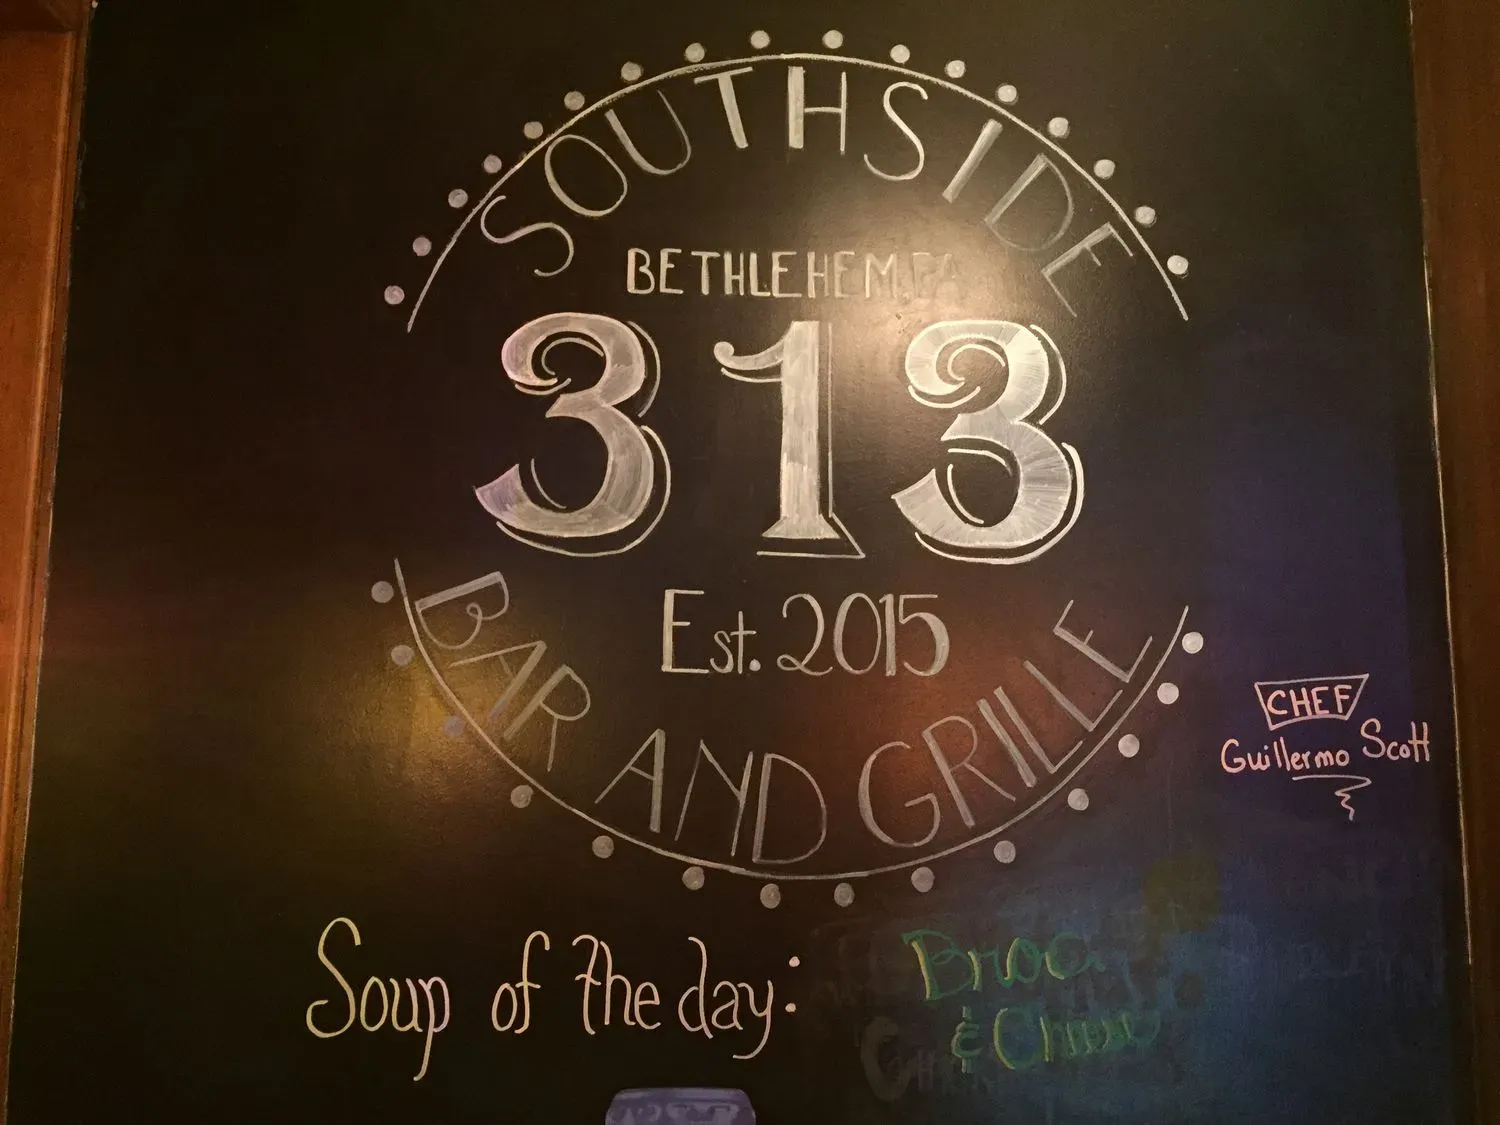 SOUTHSIDE
BETHLEHEM, PA
313
Est. 2015
BAR AND GRILLE
CHEF
Guillermo Scott
Soup of the day:
&